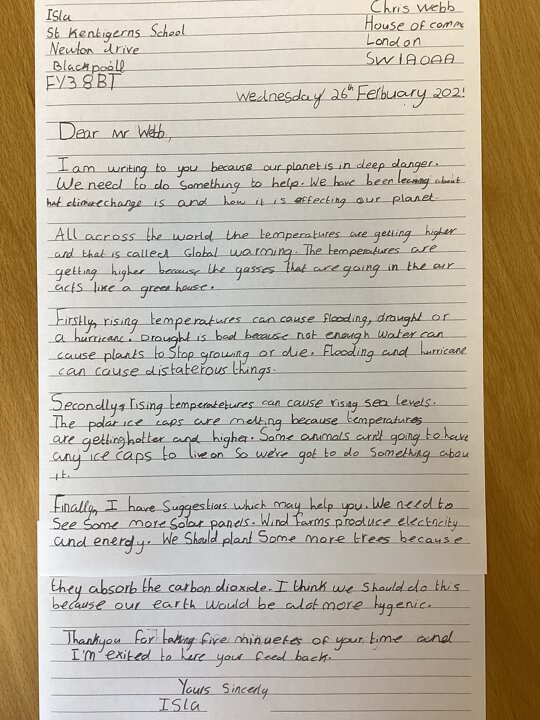 Isla
St Kentigerns School
Newton drive
Blackpoöll
FY3 8BT
Chris Webb
House of comms
London
SW1A0AA
Wednesday 26th Felbuary 2021
Dear Mr Webb,
I am writing to you because our planet is in deep danger.
We need to do something to help. We have been learning about
what climate change is and how it is effecting our planet.
All across the world the temperatures are getting higher
and that is called Global warming. The temperatures are
getting higher because the gasses that are going in the air
acts like a green house.
Firstly, rising temperatures can cause flooding, drought or
a hurricane. Drought is bad because not enough water can
cause plants to stop growing or die. Flooding and hurricane
can cause distaterous things.
Secondly, rising temperatetures can cause rising sea levels.
The polar ice caps are melting because temperatures
are getting hotter and higher. Some animals arn't going to have
any ice caps to live on so we've got to do something abou
it.
Finally, I have suggestions which may help you. We need to
see some more solar panels. Wind farms produce electricity
and energy. We should plant some more trees because
they absorb the carbon dioxide. I think we should do this
because our earth would be alot more hygenic.
Thankyou for taking five minuetes of your time and
I'm exited to here your feed back.
Yours Sincerly
ISla